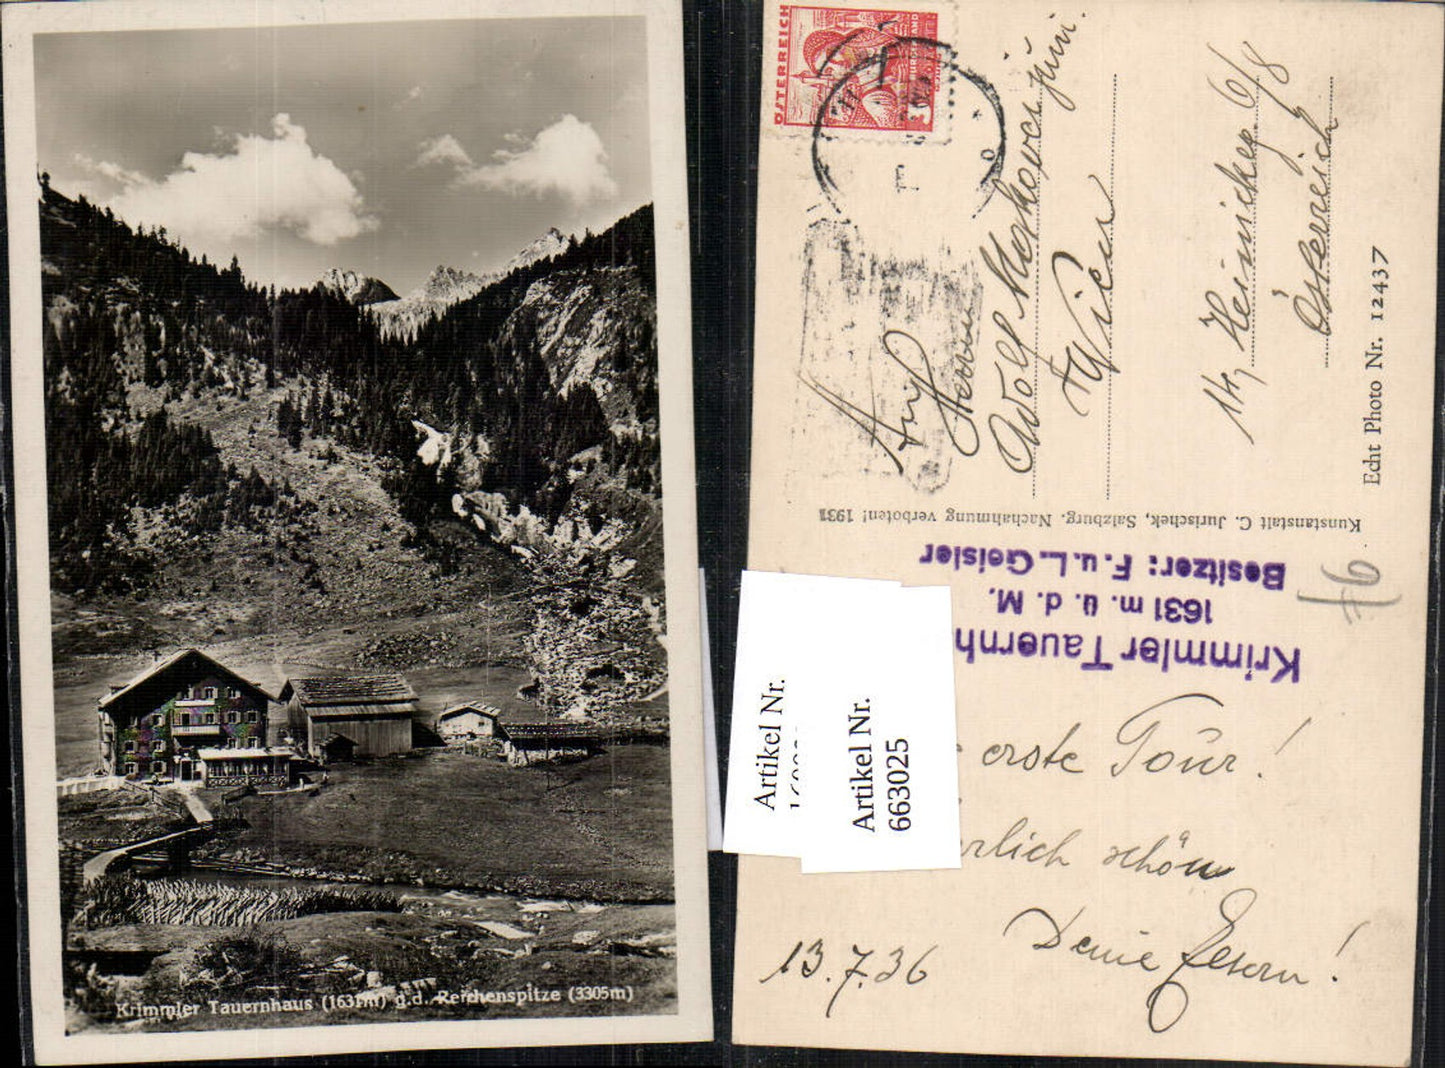 Krimmler Tauernhaus (1631m) g.d. Reichenspitze (3305m)
ÖSTERREICH
Auf
Herrn
Adolf Moskovci jun.
Wien
14, Heinickeg 6/8
Österreich
Echt Photo Nr. 12437
Kunstanstalt C. Jurischek, Salzburg. Nachahmung verboten! 1931
Krimmler Tauernh
1631 m. ü. d. M.
Besitzer: F. u. L. Geisler
76
Artikel Nr.
Artikel Nr.
663025
erste Tour!
erlich schön
Deine Eltern!
13.7.36